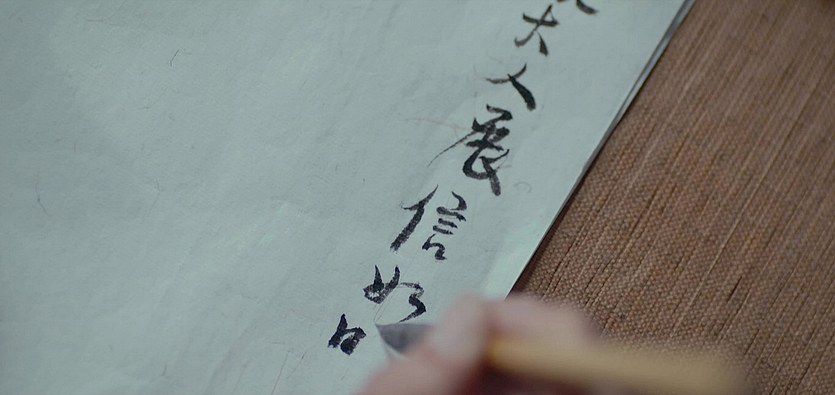 大人展信如